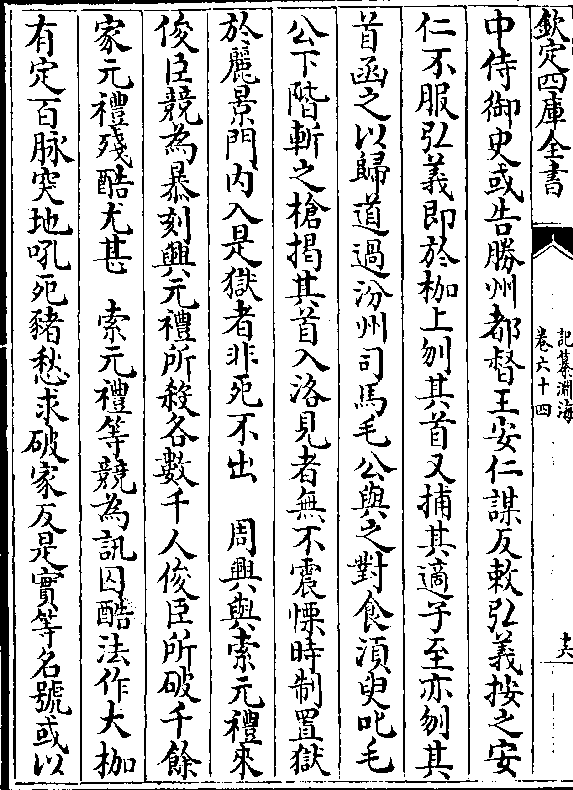 欽定四庫全書
記纂淵海
卷六十四
十六
中侍御史或告勝州都督王安仁謀反敕弘義按之安
仁不服弘義即於枷上刎其首又捕其適子至亦刎其
首函之以歸道過汾州司馬毛公與之對食湏臾叱毛
公下階斬之槍揭其首入洛見者無不震慄時制置獄
於麗景門內入是獄者非死不出　周興與索元禮來
俊臣競為暴刻興元禮所殺各數千人俊臣所破千餘
家元禮殘酷尤甚　索元禮等競為訊囚酷法作大枷
有定百脉突地吼死豬愁求破家反是實等名號或以